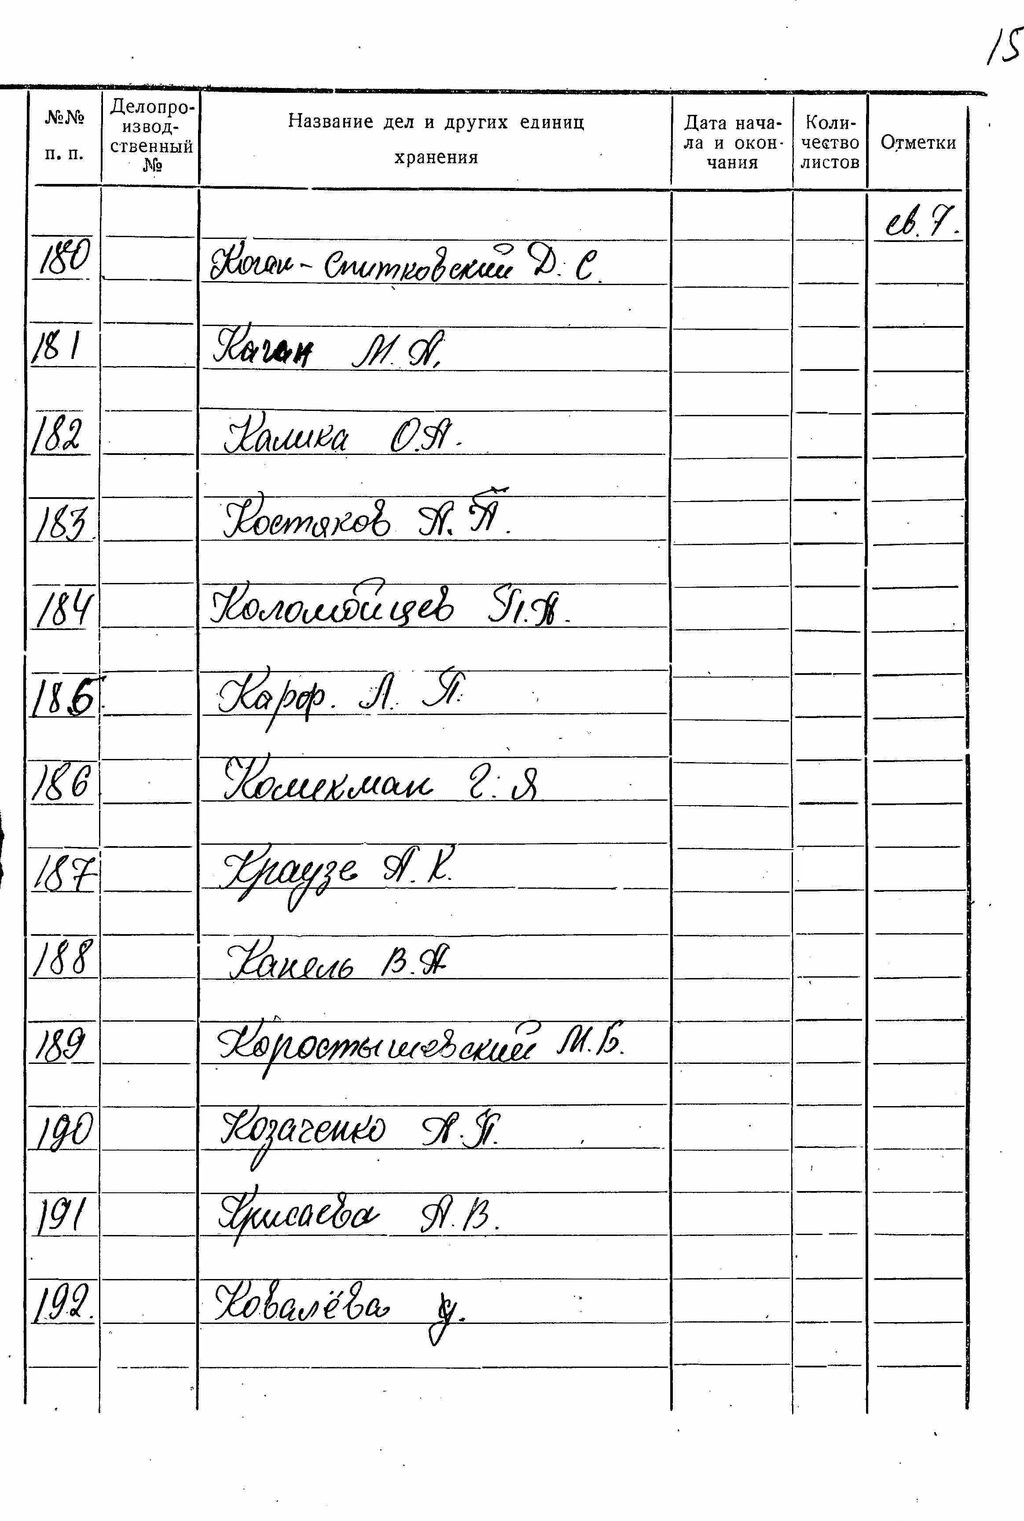 15
№№ п. п. Делопроизводственный № Название дел и других единиц хранения Дата начала и окончания Количество листов Отметки
св. 7.
180 Коган-Спитковский Д. С.
181 Каган М. А.
182 Калика О.А.
183. Костяков А. П.
184 Коломойцев П.А.
185. Карф. Л. П.
186 А. Г. Я
187 Краузе А. К.
188 Канель В. А
189 Коростышевский М.Б.
190 Козаченко А. П.
191 Крисаева А. В.
192. Ковалёва У.